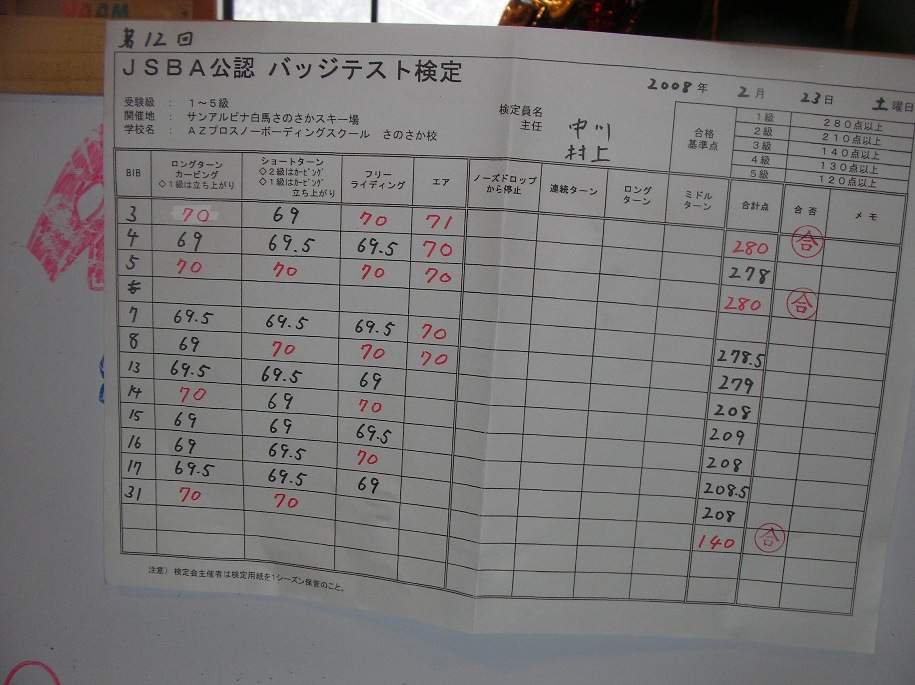 第12回
JSBA公認 バッジテスト検定
2008年 2月 23日 土曜日
受験級 : 1～5級
開催地 : サンアルピナ白馬さのさかスキー場
学校名 : AZプロスノーボーディングスクール さのさか校
検定員名
主任 中川
村上
合格基準点
1級 280点以上
2級 210点以上
3級 140点以上
4級 130点以上
5級 120点以上
BIB ロングターン カービング ◇1級は立ち上がり ショートターン ◇2級はカービング ◇1級はカービング 立ち上がり フリーライディング エア ノーズドロップから停止 連続ターン ロングターン ミドルターン 合計点 合否 メモ
3 70 69 70 71 280 合
4 69 69.5 69.5 70 278
5 70 70 70 70 280 合
6
7 69.5 69.5 69.5 70 278.5
8 69 70 70 70 279
13 69.5 69.5 69 208
14 70 69 70 209
15 69 69 69.5 208
16 69 69.5 70 208.5
17 69.5 69.5 69 208
31 70 70 140 合
注意) 検定会主催者は検定用紙を1シーズン保管のこと。